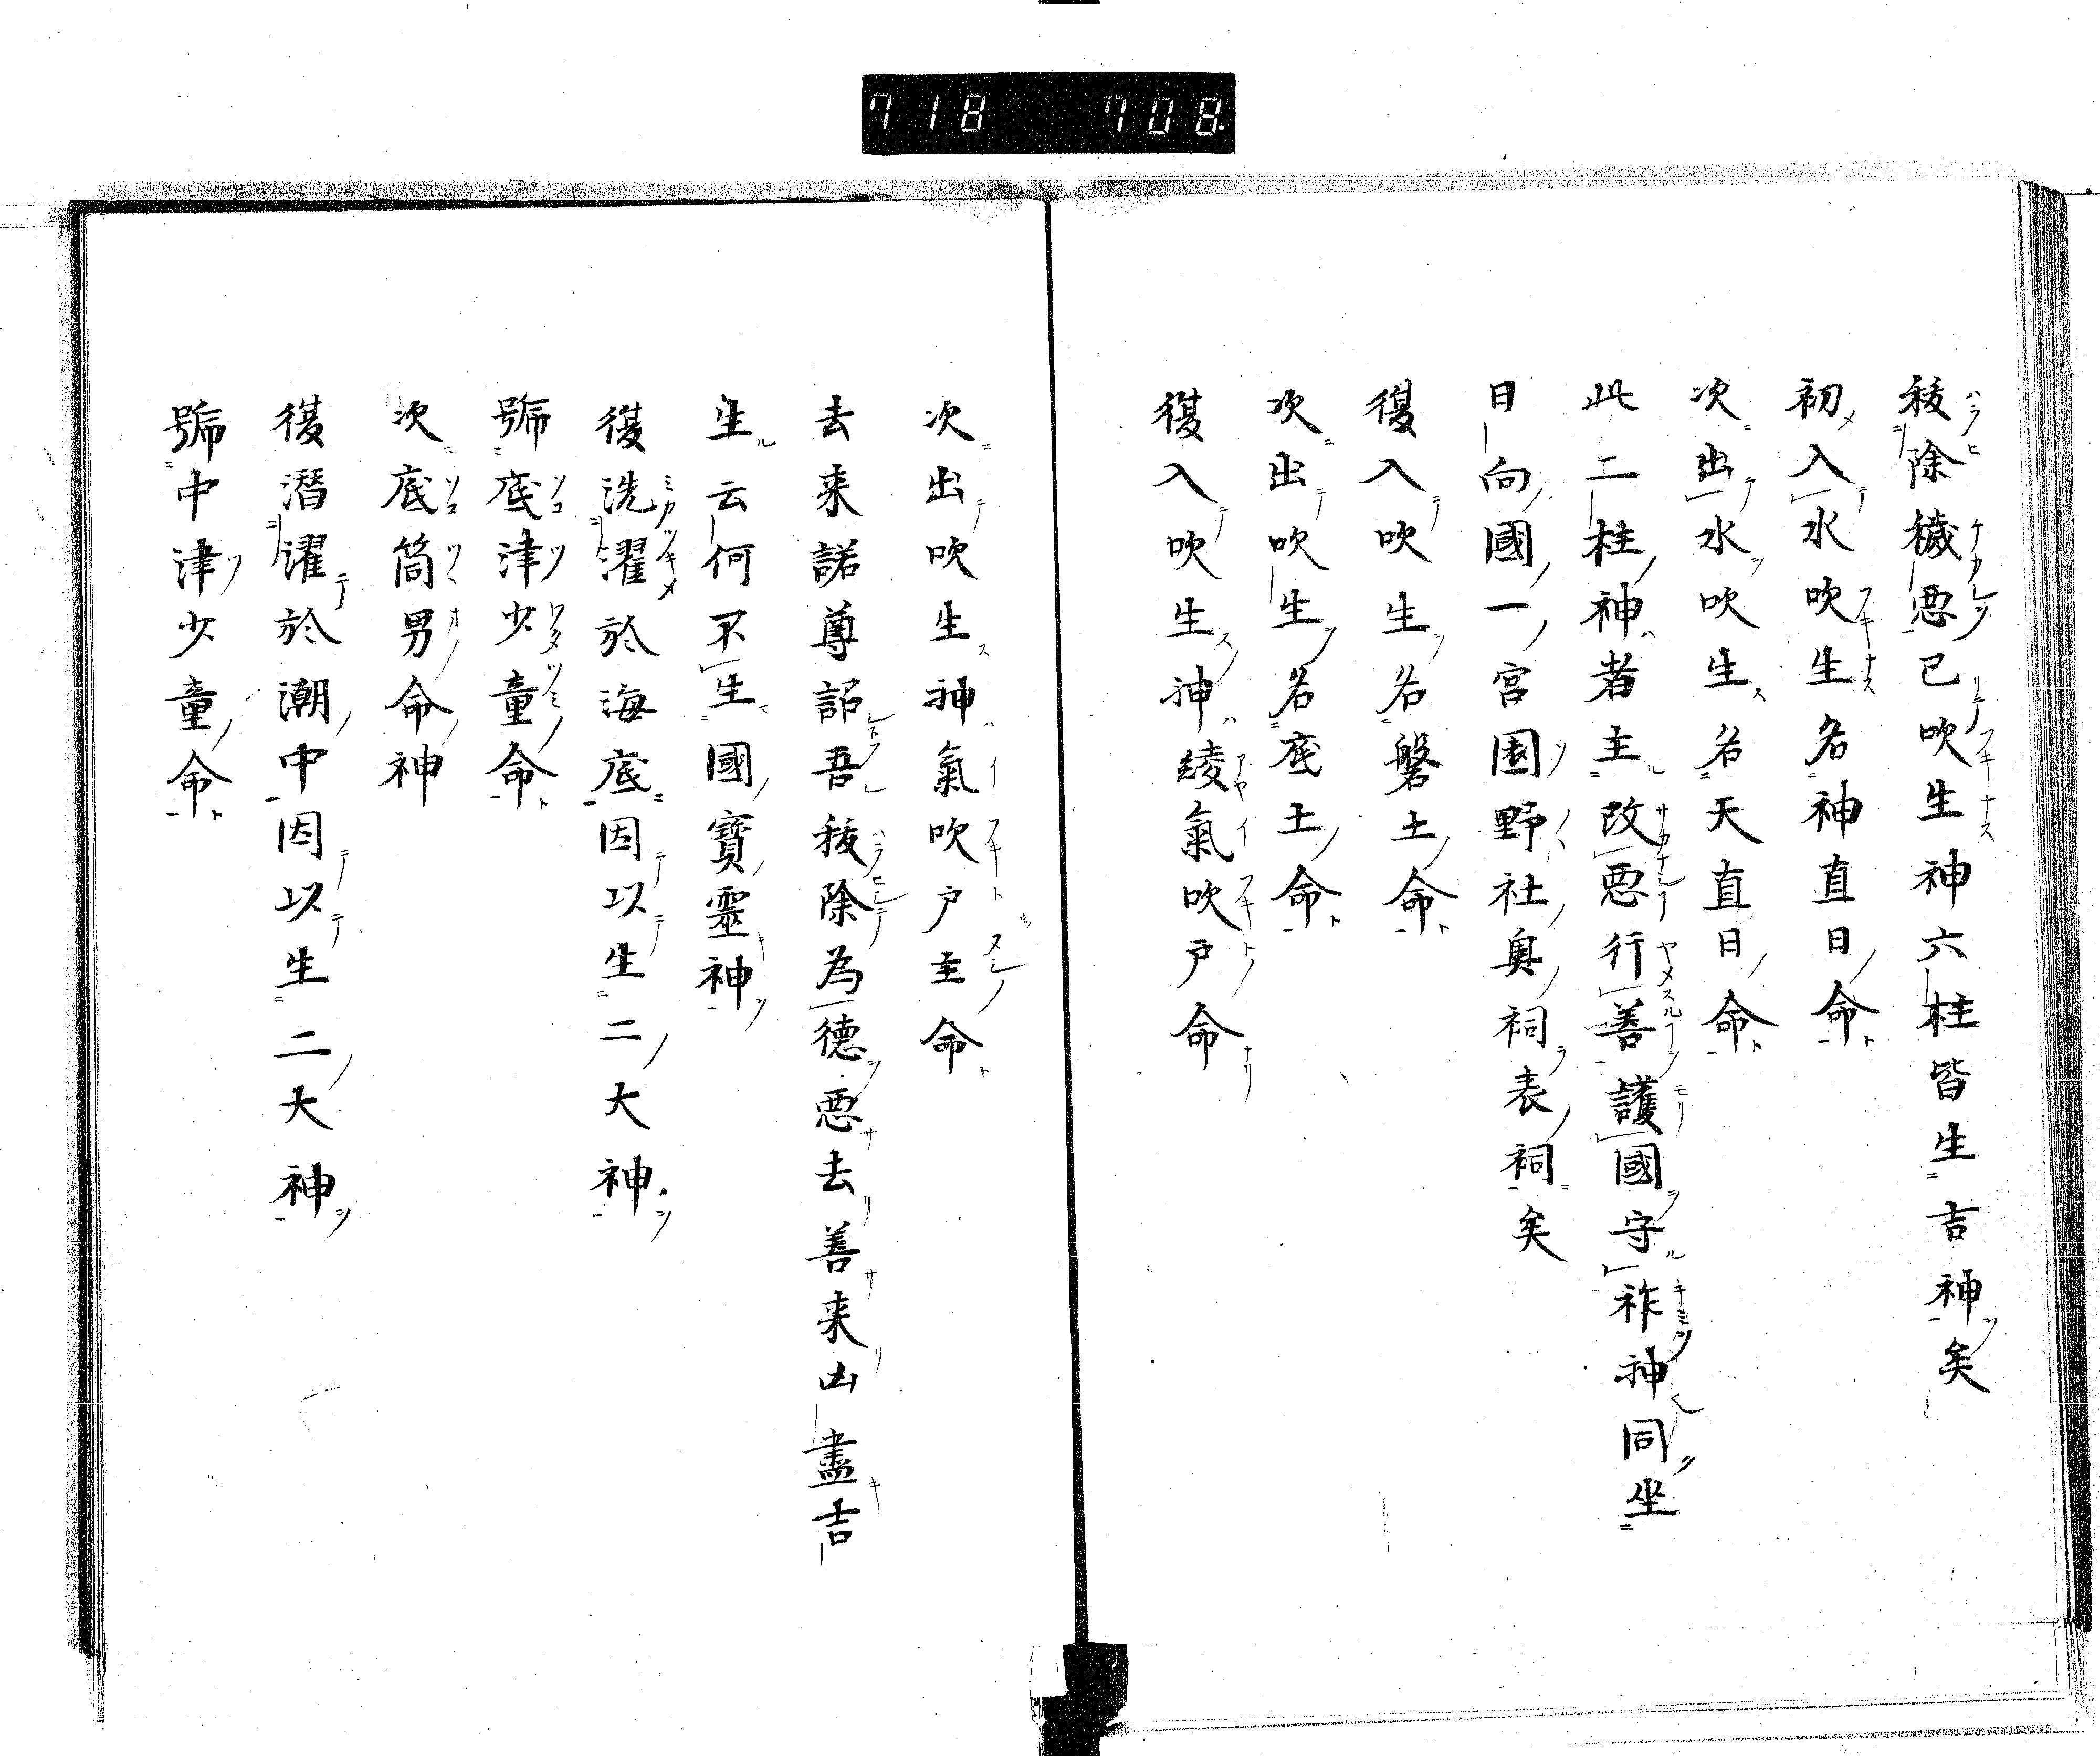 718 708.
祓除穢惡已吹生神六柱皆生吉神矣
初入水吹生名神直日命
次出水吹生名天直日命
此二柱神者主改惡行善護國守祚神同坐
日向國一宮圂野社奥祠表祠矣
復入吹生名磐土命
次出吹生名底土命
復入吹生神綾氣吹戸命
次出吹生神氣吹戸主命
去来諾尊詔吾祓除為德惡去善来凶盡吉
生云何不生國寶靈神
復洗濯於海底因以生二大神
號底津少童命
次底筒男命神
復潛濯於潮中因以生二大神
號中津少童命